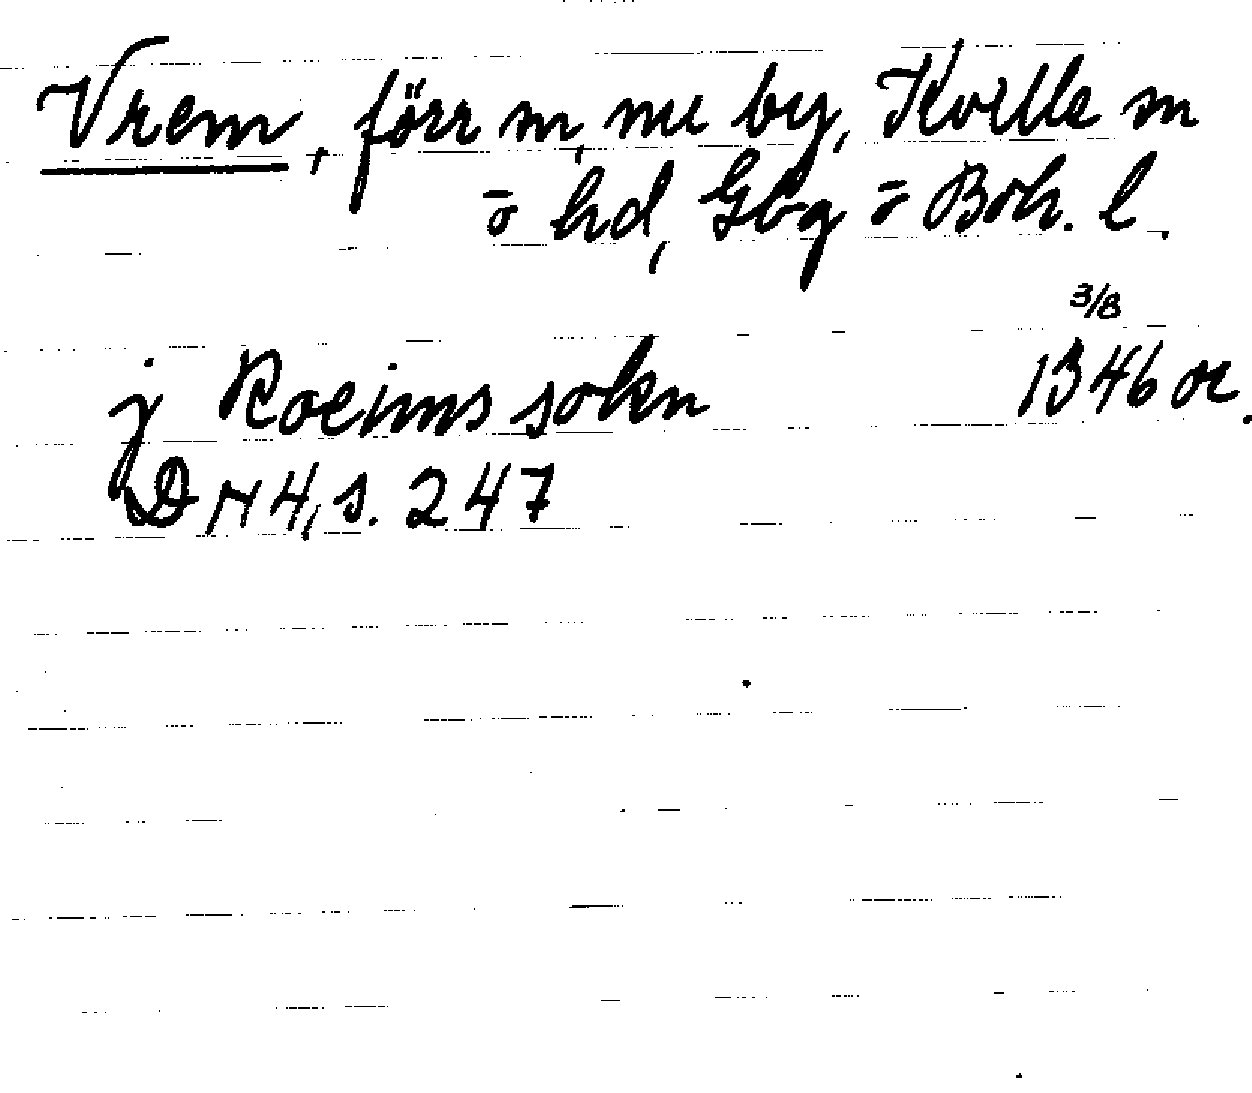 Vrem, förr sn, nu by, Kville sn
o hd, Gbg o Boh. l.
3/8
j Roeims sokn 1346 or.
DN 4, s. 247